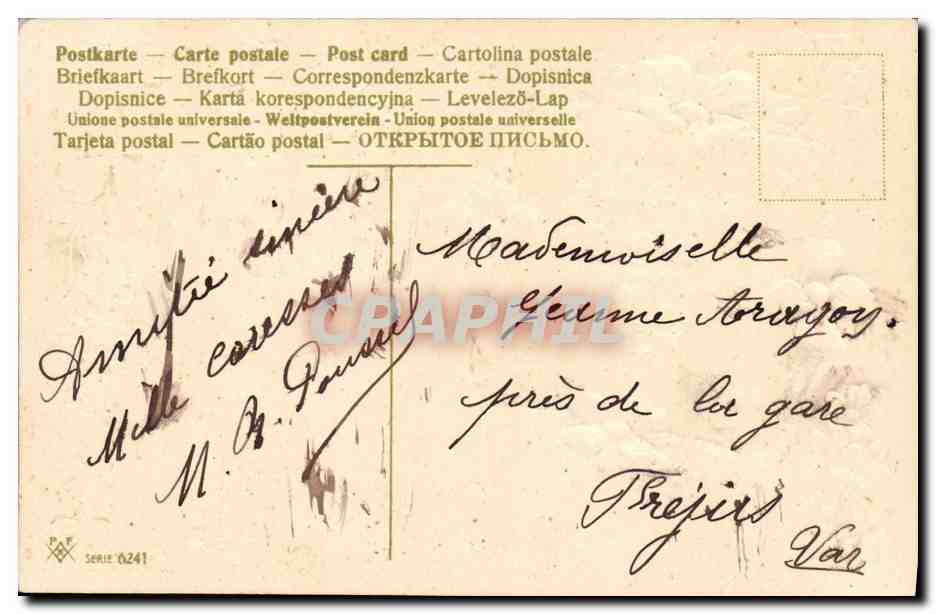 Postkarte — Carte postale — Post card — Cartolina postale
Briefkaart — Brefkort — Correspondenzkarte — Dopisnica
Dopisnice — Karta korespondencyjna — Levelező-Lap
Unione postale universale - Weltpostverein - Union postale universelle
Tarjeta postal — Cartão postal — ОТКРЫТОЕ ПИСЬМО.
Amitié sincère
Mille caresses
M. R.
Mademoiselle
Jeanne Aragon.
près de la gare
Fréjus
Var
CPAPHIL
P F
SERIE 6241